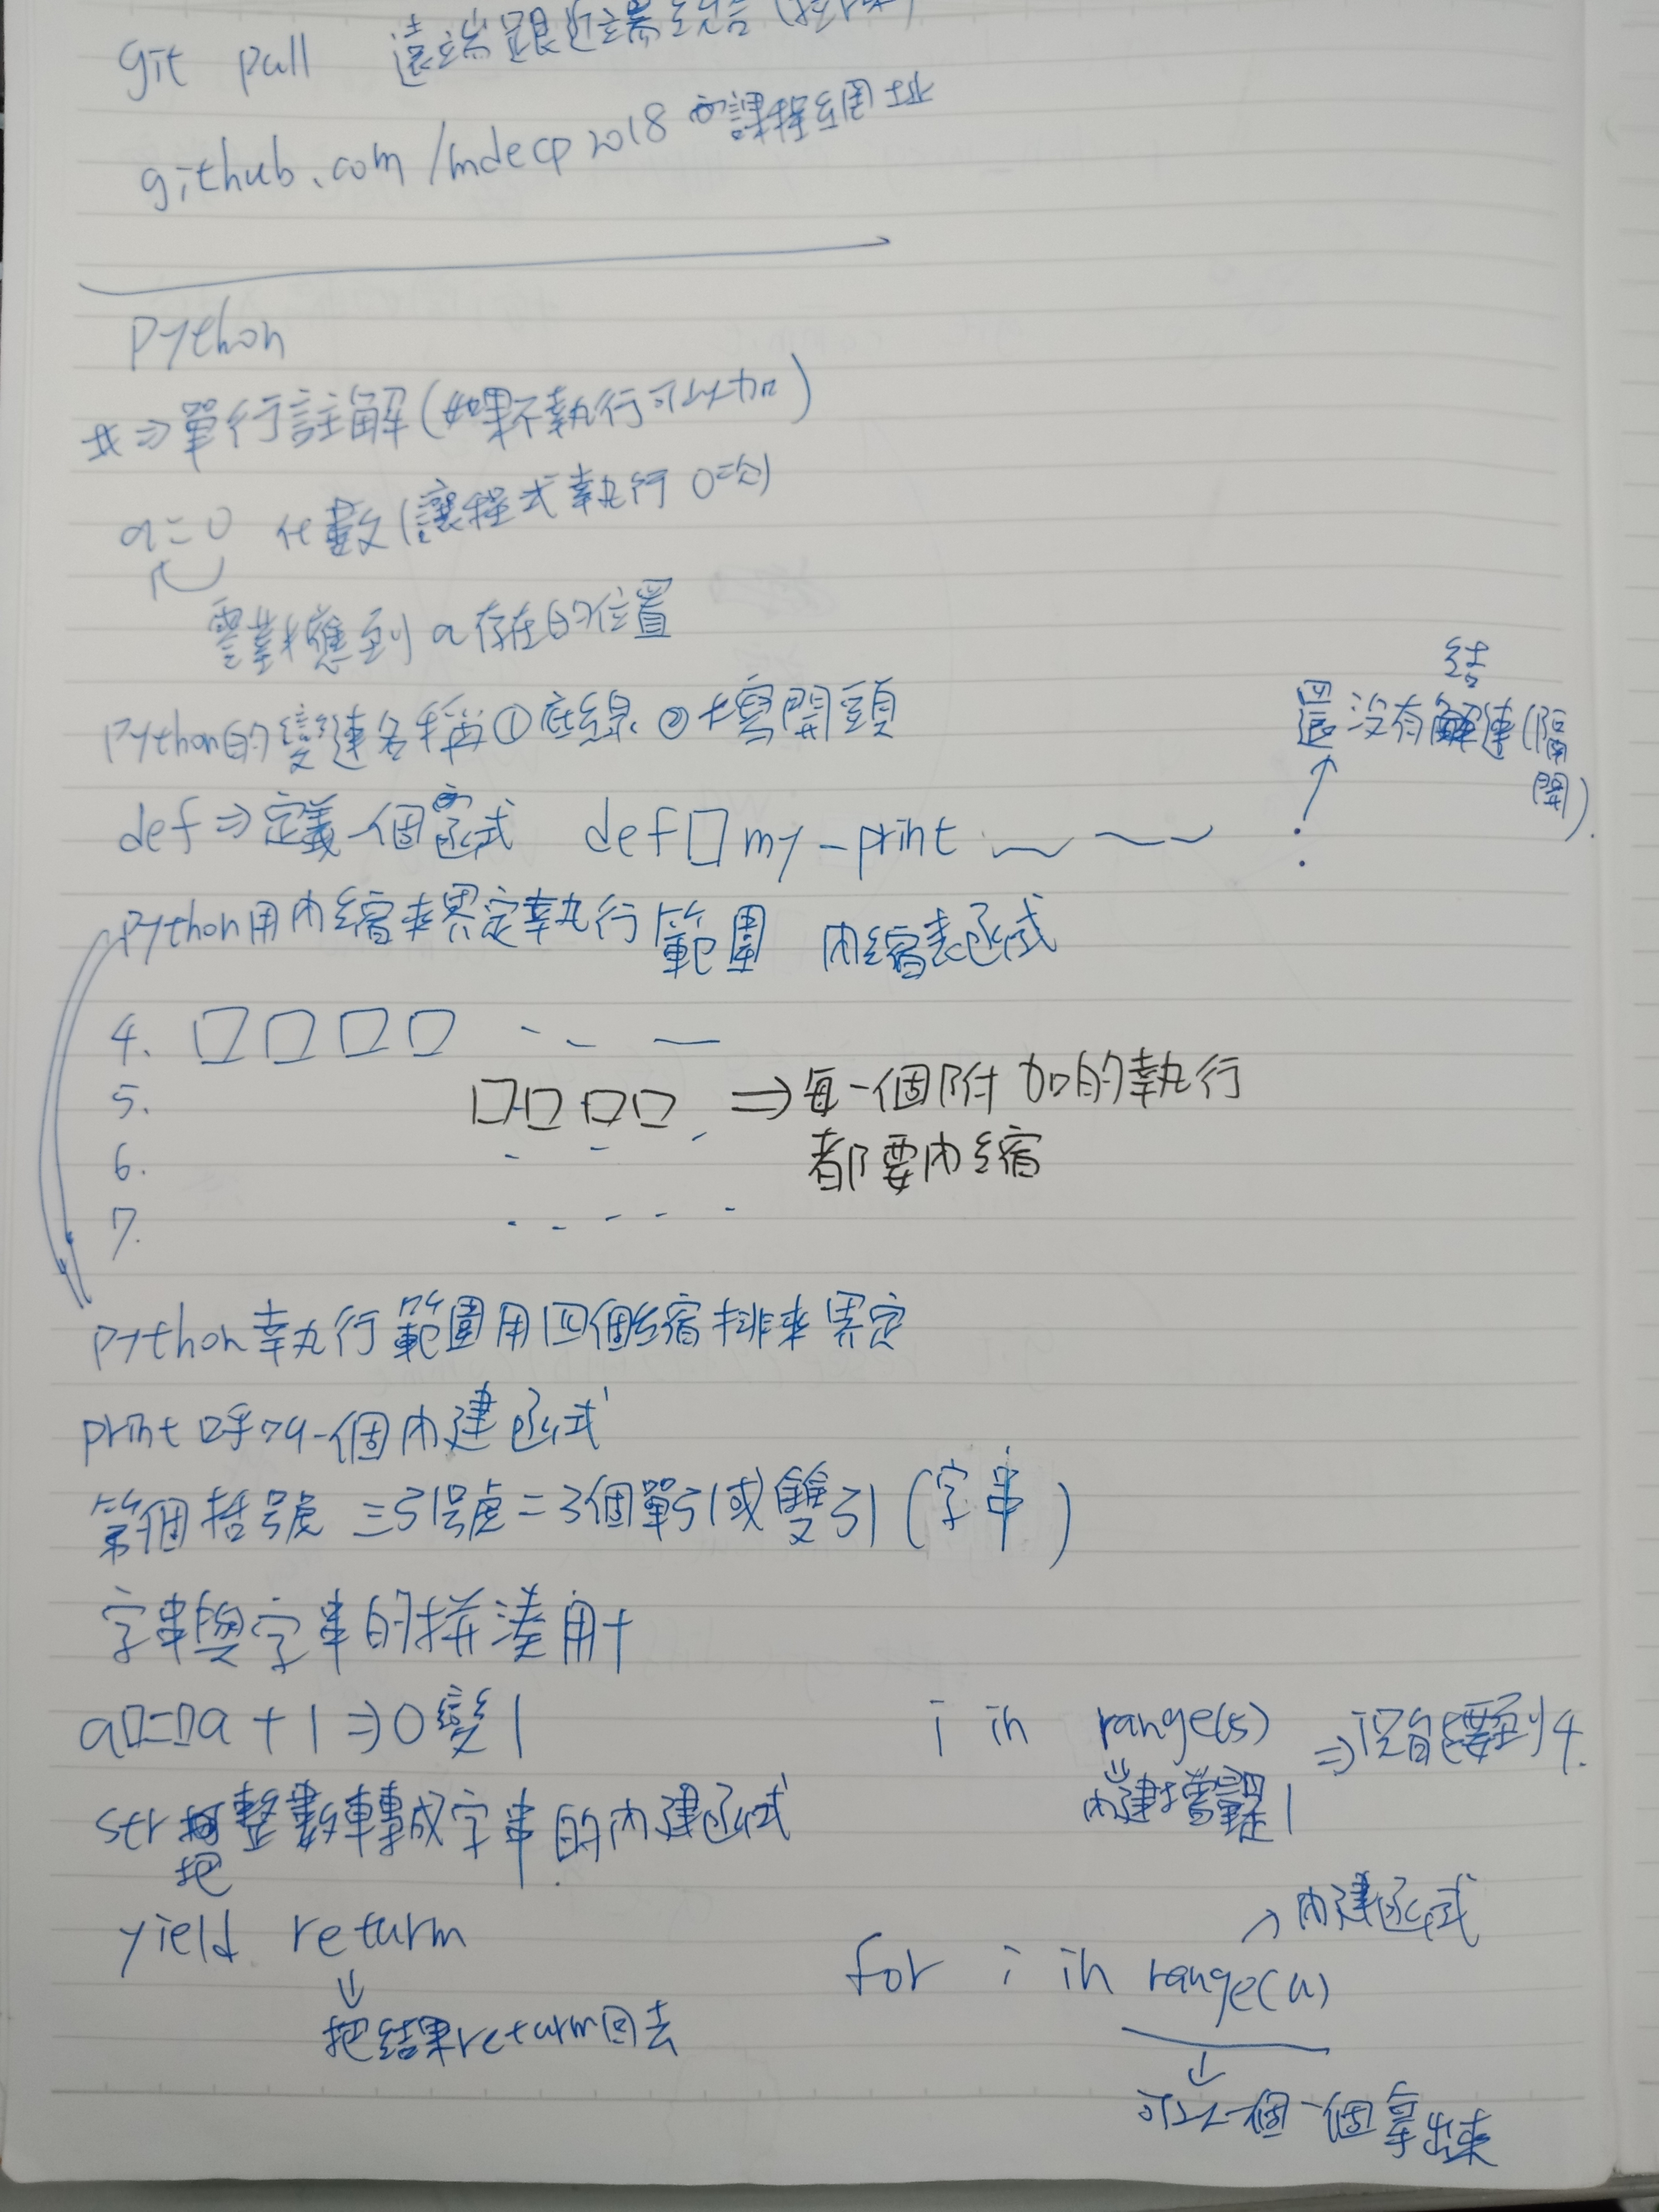 git pull 遠端跟近端
github.com/mdecp2018 的課程網址
Python
# ⇒ 單行註解(如果不執行可以加)
a = 0 代數(讓程式執行0次)
需對應到a存在的位置
Python的變速名稱①底線②大寫開頭
結
還沒有解連(隔開).
def ⇒ 定義一個函式 def□my_print :
Python用內縮來界定執行範圍 內縮表函式
4. □□□□
5. □□□□ ⇒ 每一個附加的執行
都要內縮
6.
7.
Python執行範圍用四個縮排來界定
print呼叫一個內建函式
第個括號 三引號=3個單引或雙引(字串)
字串與字串的拼湊用+
a□=□a + 1 ⇒ 0變1
i in range(5) ⇒ i只能要到4.
內建增量是1
str 把整數轉成字串的內建函式.
yield return
把結果return回去
內建函式
for i in range(a)
可以一個一個拿出來